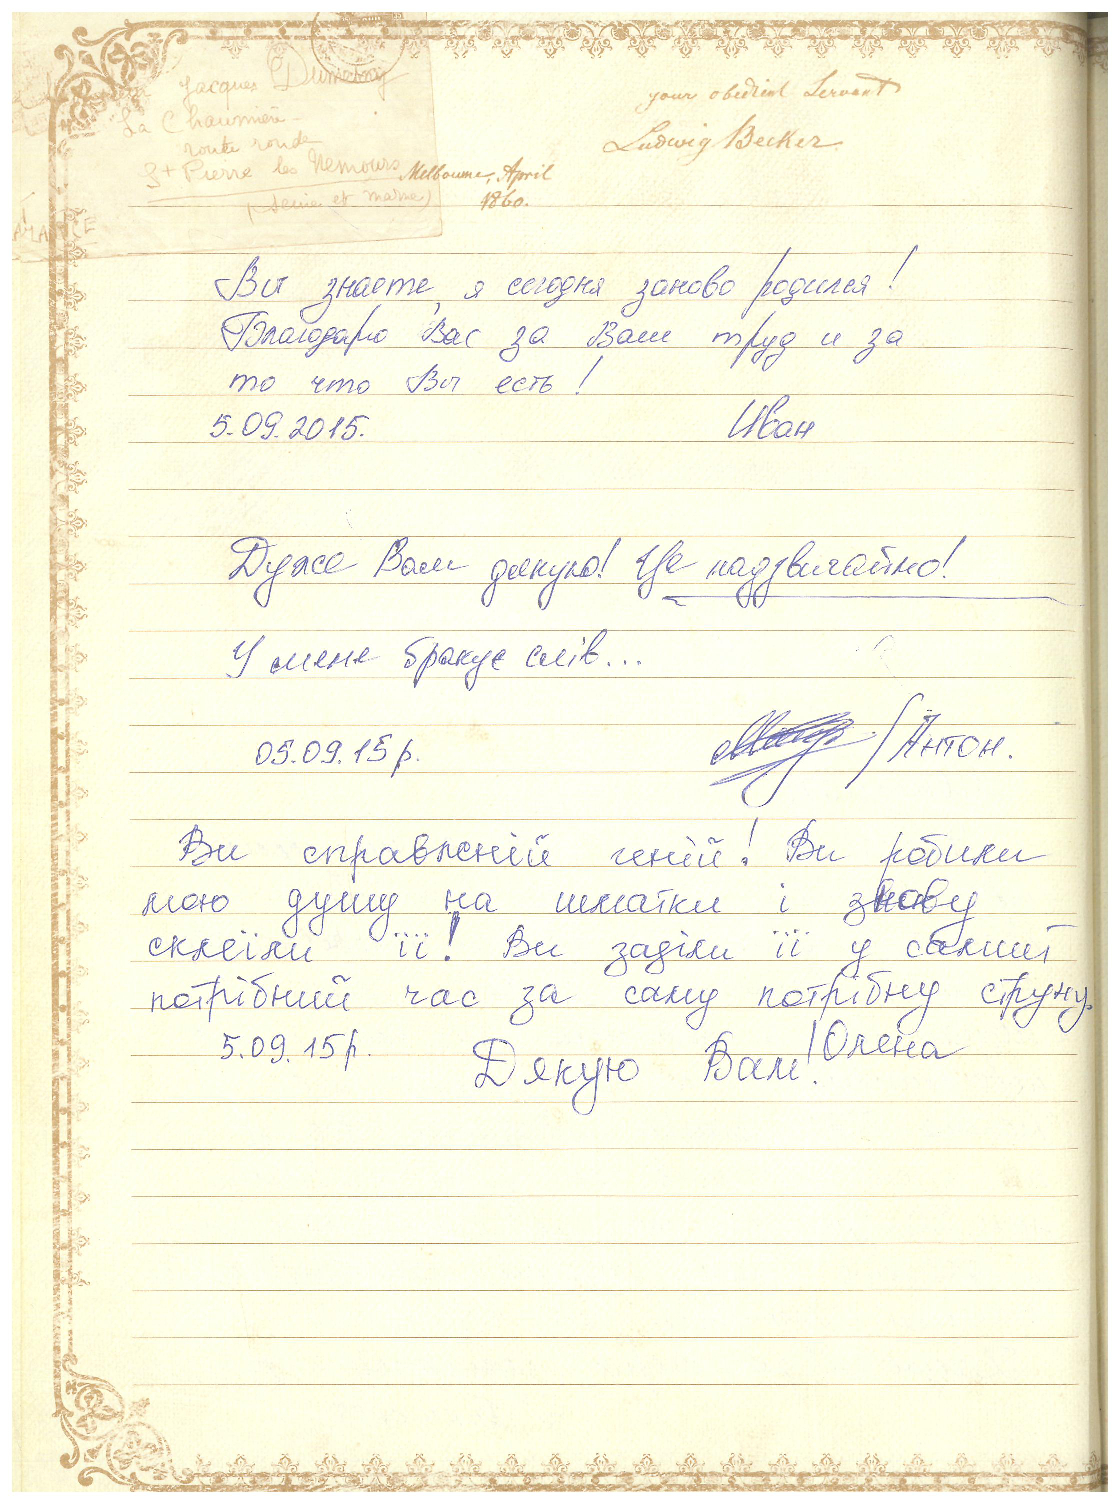 Jacques
La Chaumière
route ronde
St Pierre les Nemours
(Seine et marne)
your obedient Servant
Ludwig Becker
Melbourne, April
1860.
Вы знаете, я сегодня заново родился!
Благодарю Вас за Ваш труд и за
то что Вы есть!
5.09.2015. Иван
Дуже Вам дякую! Це надзвичайно!
У мене бракує слів...
05.09.15р. /Антон.
Ви справжній геній! Ви робили
мою душу на шматки і знову
склеїли її! Ви заділи її у самий
потрібний час за саму потрібну струну.
5.09.15р. Дякую Вам! Олена